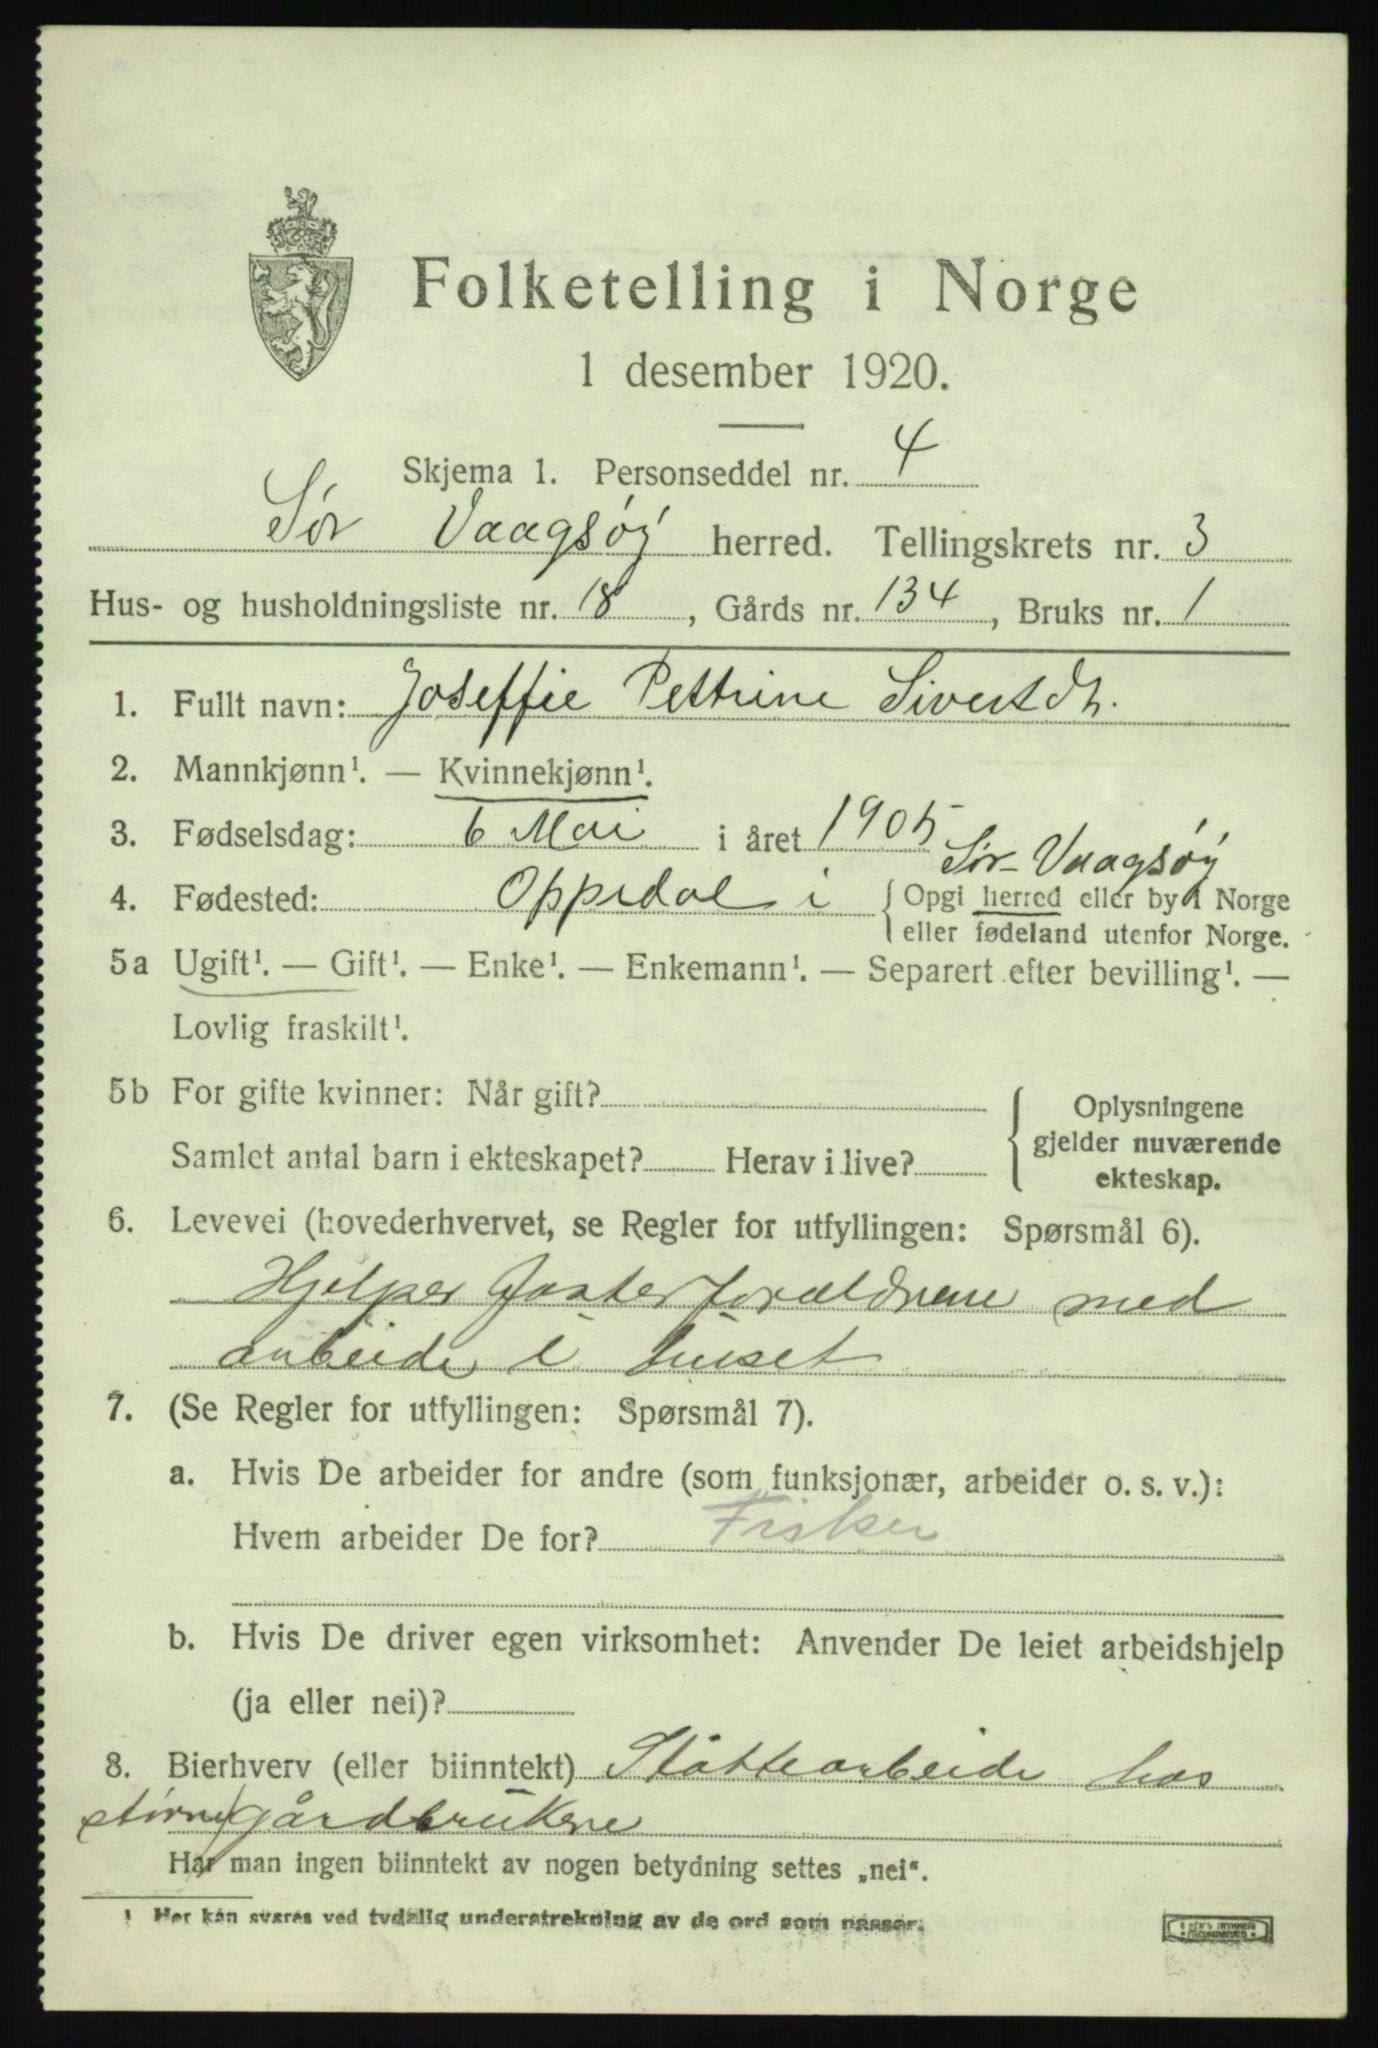 Folketelling i Norge
1 desember 1920.
Skjema 1. Personseddel nr. 4
Sør Vaagsøy herred. Tellingskrets nr. 3
Hus- og husholdningsliste nr. 18, Gårds nr. 134, Bruks nr. 1
1. Fullt navn: Joseffie Pettrine Sivertdtr.
2. Mannkjønn¹. — Kvinnekjønn¹.
3. Fødselsdag: 6 Mai i året 1905
Sør-Vaagsøy
4. Fødested: Oppedal i { Opgi herred eller by i Norge
eller fødeland utenfor Norge.
5a Ugift¹. — Gift¹. — Enke¹. — Enkemann¹. — Separert efter bevilling¹. —
Lovlig fraskilt¹.
5b For gifte kvinner: Når gift?
Samlet antal barn i ekteskapet? Herav i live?
Oplysningene
gjelder nuværende
ekteskap.
6. Levevei (hovederhvervet, se Regler for utfyllingen: Spørsmål 6).
Hjelper fosterforældrene med
arbeide i huset
7. (Se Regler for utfyllingen: Spørsmål 7).
a. Hvis De arbeider for andre (som funksjonær, arbeider o. s. v.):
Hvem arbeider De for? Fisker
b. Hvis De driver egen virksomhet: Anvender De leiet arbeidshjelp
(ja eller nei)?
8. Bierhverv (eller biinntekt) Slåttearbeide hos
større gårdbrukere
Har man ingen biinntekt av nogen betydning settes „nei“.
¹ Her kan svares ved tydelig understrekning av de ord som passer.